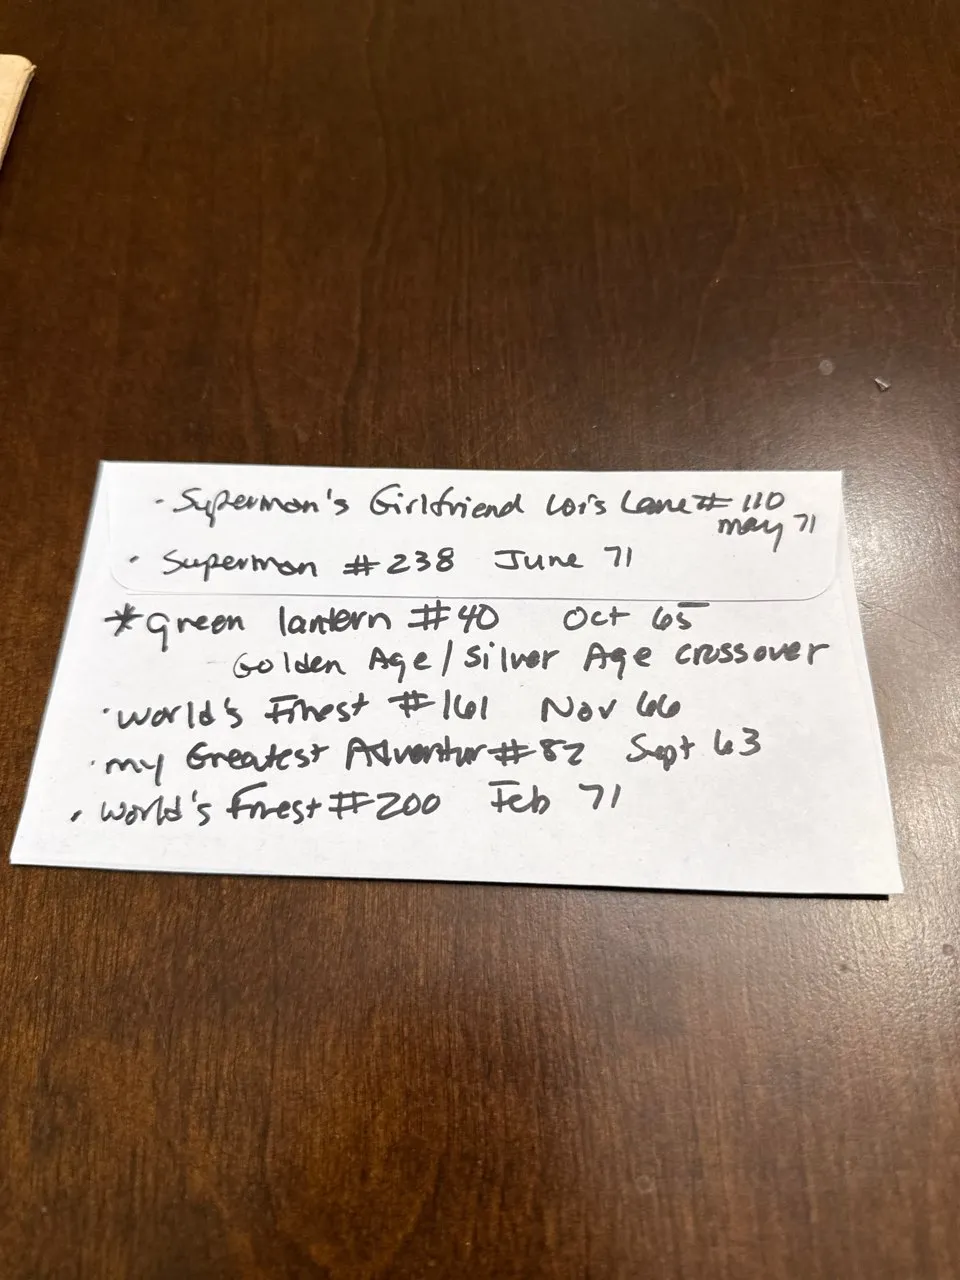 · Superman's Girlfriend Lois Lane # 110
may 71
· Superman #238 June 71
* green lantern #40 Oct 65
Golden Age/Silver Age crossover
· World's Finest #161 Nov 66
· my Greatest Adventur #82 Sept 63
· World's Finest #200 Feb 71